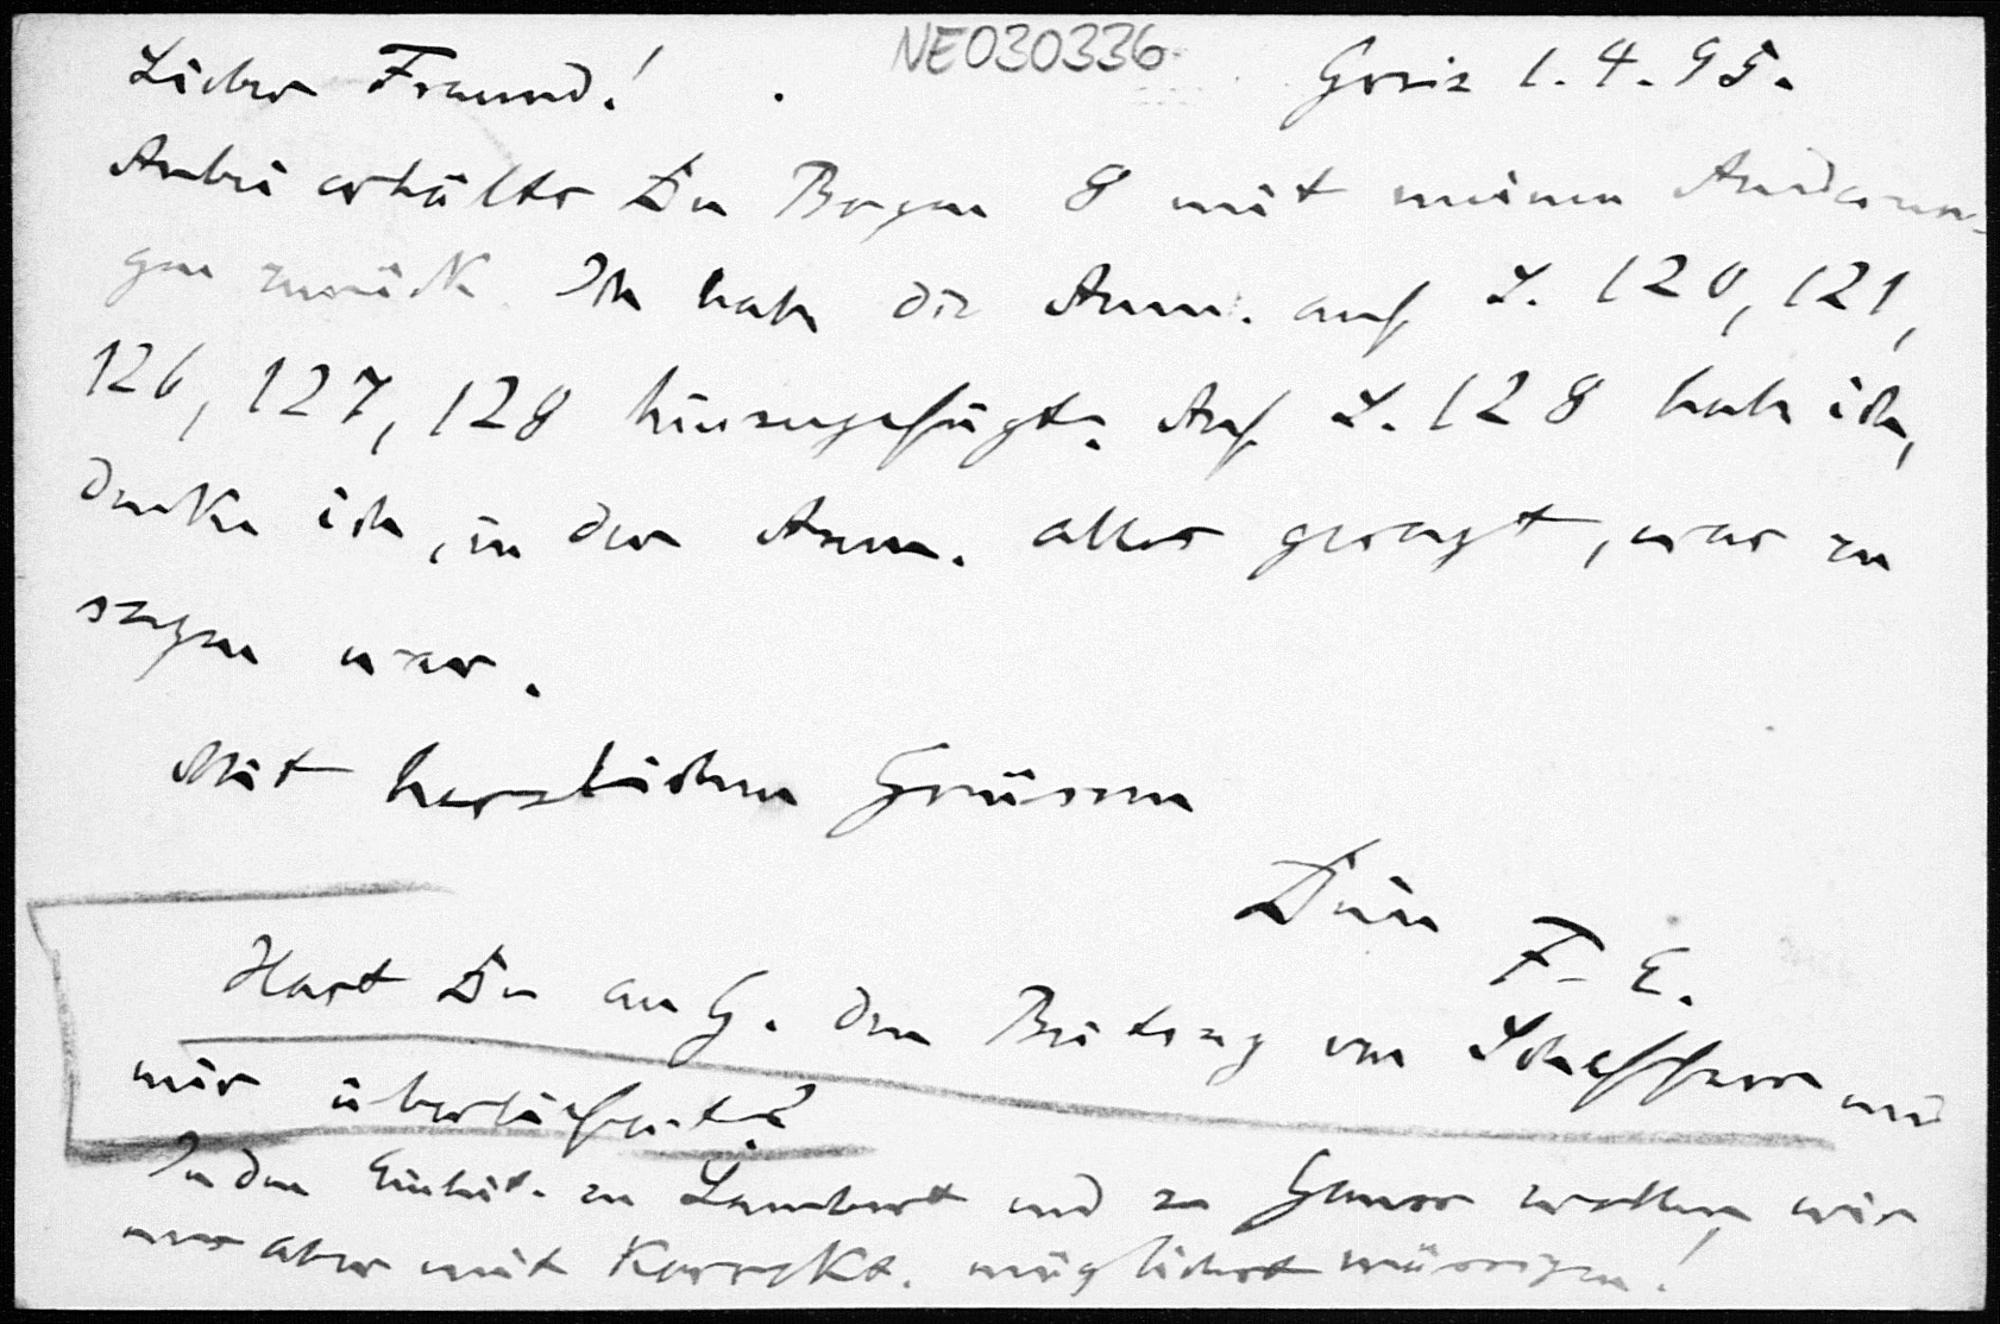 NE030336
Lieber Freund! Greiz 1.4.95.
Anbei erhälts Du Bogen 8 mit meinen Änderun-
gen zurück. Ich habe die Anm. auf S. 120, 121,
126, 127, 128 hinzugefügt. Auf S. 128 habe ich,
denke ich, in der Anm. alles gesagt, was zu
sagen war.
Mit herzlichen Grüssen
Dein
F. E.
Hast Du an G. den Beitrag von Scheffers und
mir überliefert?
In den Einleit. zu Lambert und zu Gauss wollen wir
uns aber mit Korrekt. möglichst mässigen!